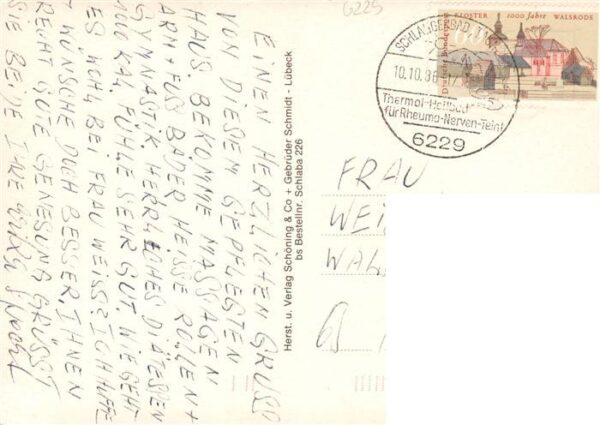 6225
EINEN HERZLICHEN GRUSS
VON DIESEM GEPFLEGTEN
HAUS. BEKOMME MASSAGEN
ARM + FUSS BÄDER HEISSE ROLLEN +
GYMNASTIK HERRLICHES DIÄTESSEN
1000 KAL. FÜHLE SEHR GUT. WIE GEHT
ES WOHL BEI FRAU WEISS? ICH HOFFE
+ WÜNSCHE DOCH BESSER, IHNEN
RECHT GUTE GENESUNG GRÜSST
SIE BEIDE IHRE
Herst. u. Verlag Schöning & Co + Gebrüder Schmidt - Lübeck
bs Bestellnr. Schlaba 226
KLOSTER 1000 Jahre WALSRODE
Deutsche Bundespost
SCHLANGENBAD
10.10.86
Thermal-Heilbad
für Rheuma-Nerven-Teint
6229
FRAU
WEI
WAL